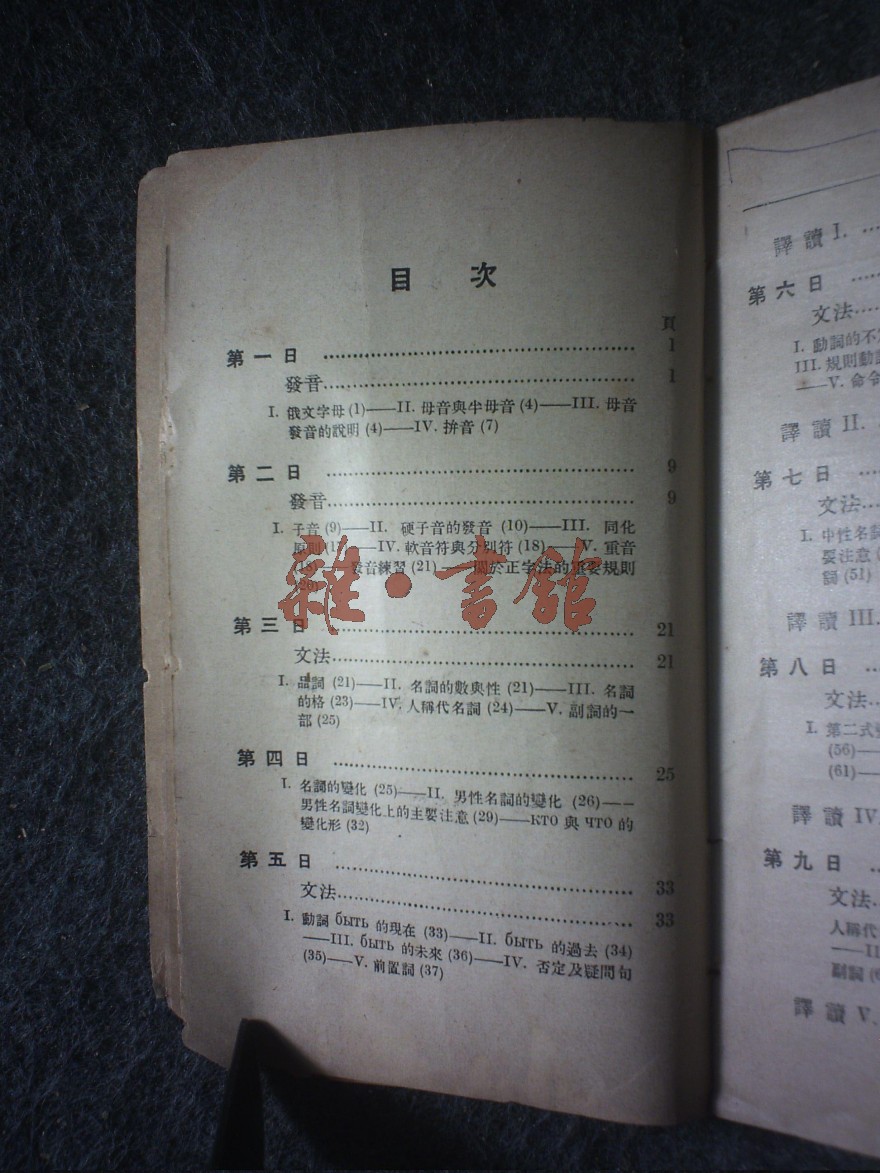 目 次
頁
第一日 …… 1
發音 …… 1
I. 俄文字母 (1)——II. 母音與半母音 (4)——III. 母音
發音的說明 (4)——IV. 拚音 (7)
第二日 …… 9
發音 …… 9
I. 子音 (9)——II. 硬子音的發音 (10)——III. 同化
原則 ——IV. 軟音符與分別符 (18)——V. 重音
(18)——發音練習 (21)——關於正字法的重要規則
(20)
雜·書館
第三日 …… 21
文法 …… 21
I. 品詞 (21)——II. 名詞的數與性 (21)——III. 名詞
的格 (23)——IV. 人稱代名詞 (24)——V. 副詞的一
部 (25)
第四日 …… 25
I. 名詞的變化 (25)——II. 男性名詞的變化 (26)——
男性名詞變化上的主要注意 (29)——КТО 與 ЧТО 的
變化形 (32)
第五日 …… 33
文法 …… 33
I. 動詞 быть 的現在 (33)——II. быть 的過去 (34)
——III. быть 的未來 (36)——IV. 否定及疑問句
(35)——V. 前置詞 (37)
譯讀 I. …
第六日 …
文法 …
I. 動詞的不
III. 規則動
——V. 命令
譯讀 II.
第七日 …
文法 …
I. 中性名詞
要注意
詞 (51)
譯讀 III.
第八日 …
文法 …
I. 第二式
(56)——
(61)——
譯讀 IV.
第九日 …
文法 …
人稱代
——II
副詞 (6
譯讀 V.